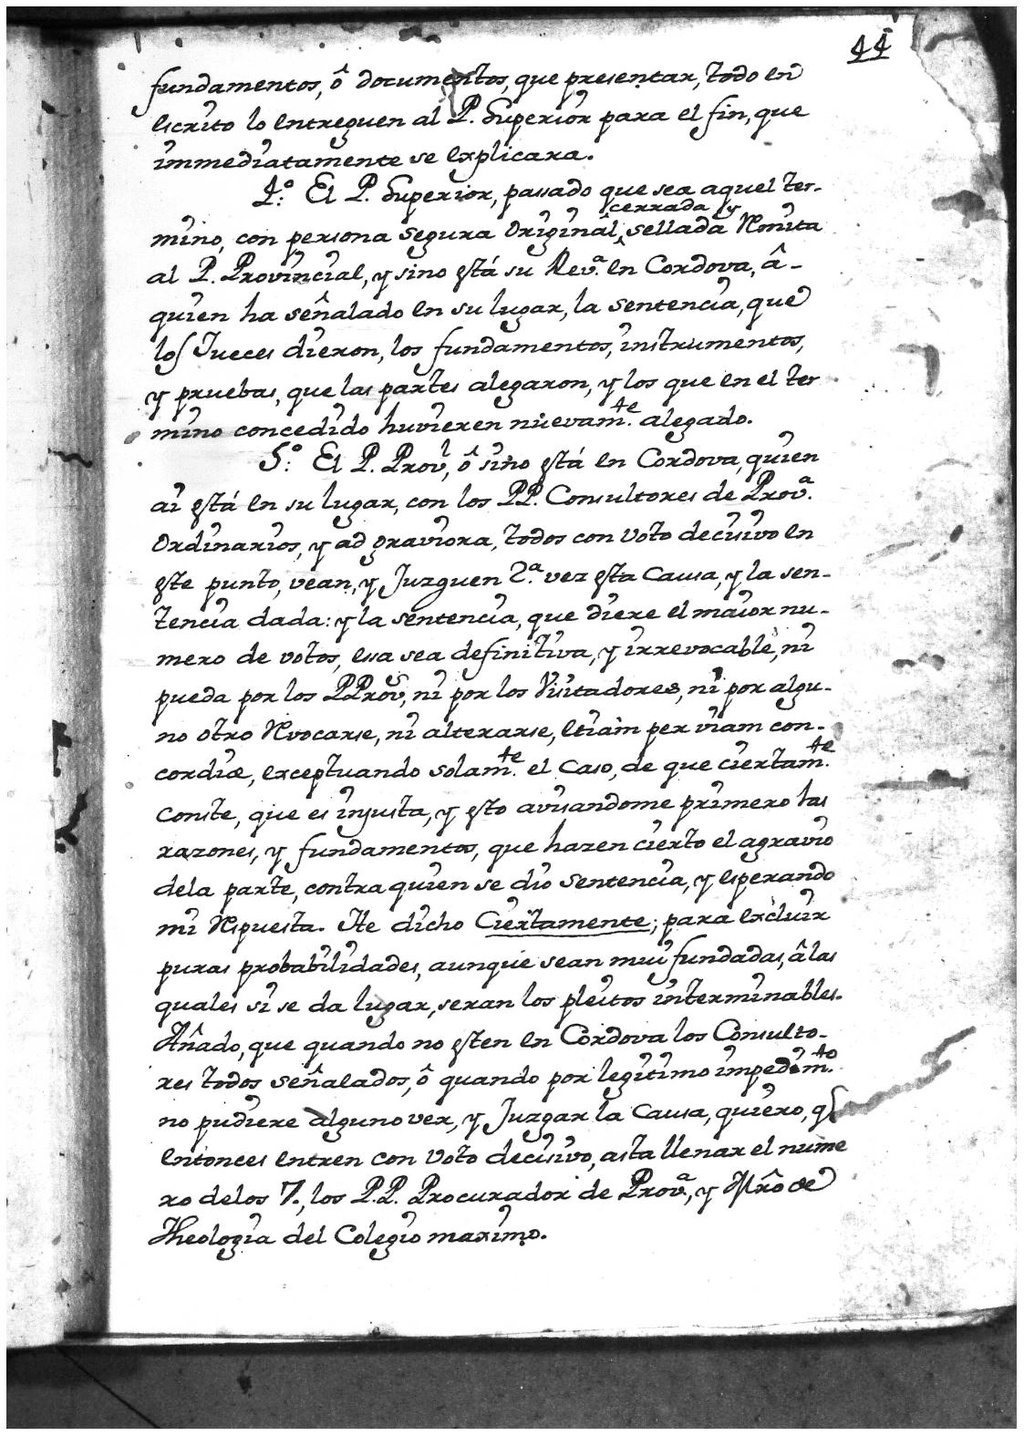 44
fundamentos, ô documentos, que presentar, todo en
escrito lo entreguen al P. Superior para el fin, que
immediatamente se explicara.
4º: El P. Superior, passado que sea aquel ter-
cerrada y
mino, con persona segura original, sellada Remita
al P. Provincial, y sino está su Revª. en Cordova, â-
quien ha señalado en su lugar, la sentencia, que
los Jueces dieron, los fundamentos, instrumentos,
y pruebas, que las partes alegaron, y los que en el ter
mino concedido huvieren nuevamte. alegado.
5º: El P. Provl, ô sino está en Cordova, quien
ai está en su lugar, con los PP. Consultores de Provª.
Ordinarios, y ad graviora, todos con voto decisivo en
este punto, vean, y Juzguen 2ª. vez esta Causa, y la sen-
tencia dada: y la sentencia, que diere el maior nu-
mero de votos, essa sea definitiva, y irrevocable, ni
pueda por los PProvs, ni por los Visitadores, ni por algu-
no otro Revocarse, ni alterarse, etiam per viam con-
cordiæ, exceptuando solamte. el caso, de que ciertamte.
conste, que es injusta, y esto avisandome primero las
razones, y fundamentos, que hazen cierto el agravio
dela parte, contra quien se dio sentencia, y esperando
mi Respuesta. He dicho Ciertamente; para excluir
puras probabilidades, aunque sean mui fundadas, â las
quales si se da lugar, seran los pleitos interminables.
Añado, que quando no esten en Cordova los Consulto-
res todos señalados, ô quando por legitimo impedimto.
no pudiere alguno ver, y Juzgar la Causa, quiero, q̃
entonces entren con voto decisivo, asta llenar el nume
ro delos 7., los P.P. Procurador de Provª, y Mrô de
Theologia del Colegio maximo.